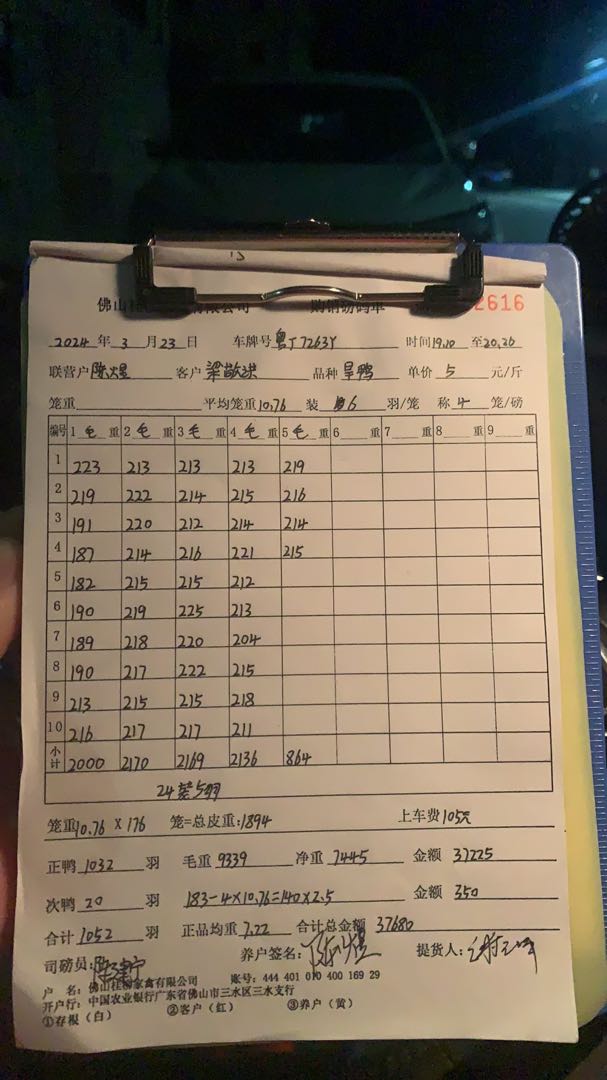 佛山 有限公司 购销磅码单 2616
2024年3月23日 车牌号粤J7263Y 时间19.10至20.26
联营户陈煜 客户梁敬洪 品种旱鸭 单价5元/斤
笼重 平均笼重10.76 装6羽/笼 称4笼/磅
编号 1毛重 2毛重 3毛重 4毛重 5毛重 6重 7重 8重 9重
1 223 213 213 213 219
2 219 222 214 215 216
3 191 220 212 214 214
4 187 214 216 221 215
5 182 215 215 212
6 190 219 225 213
7 189 218 220 204
8 190 217 222 215
9 213 215 215 218
10 216 217 217 211
小计 2000 2170 2169 2136 864
24 5羽
笼重10.76×176 笼=总皮重:1894 上车费105元
正鸭1032羽 毛重9339 净重7445 金额37225
次鸭20羽 183-4×10.76=140×2.5 金额350
合计1052羽 正品均重7.22 合计总金额37680
司磅员: 养户签名: 提货人:
户 名:佛山桂柳家禽有限公司 账号:444 401 010 400 169 29
开户行:中国农业银行广东省佛山市三水区三水支行
①存根(白) ②客户(红) ③养户(黄)